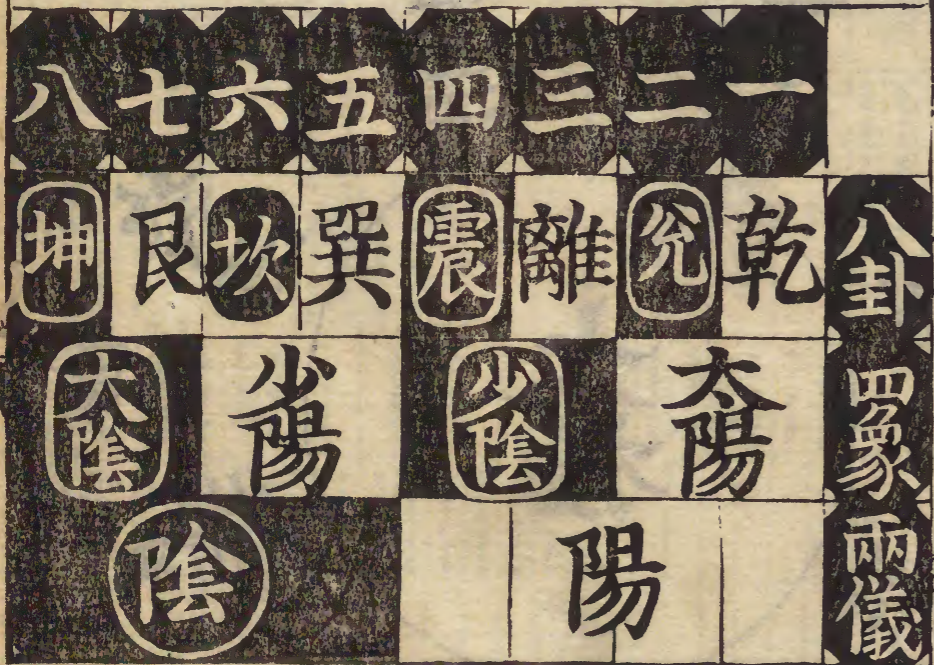 一 二 三 四 五 六 七 八
八卦 乾 兊 離 震 巽 坎 艮 坤
四象 太陽 少陰 少陽 大陰
兩儀 陽 陰